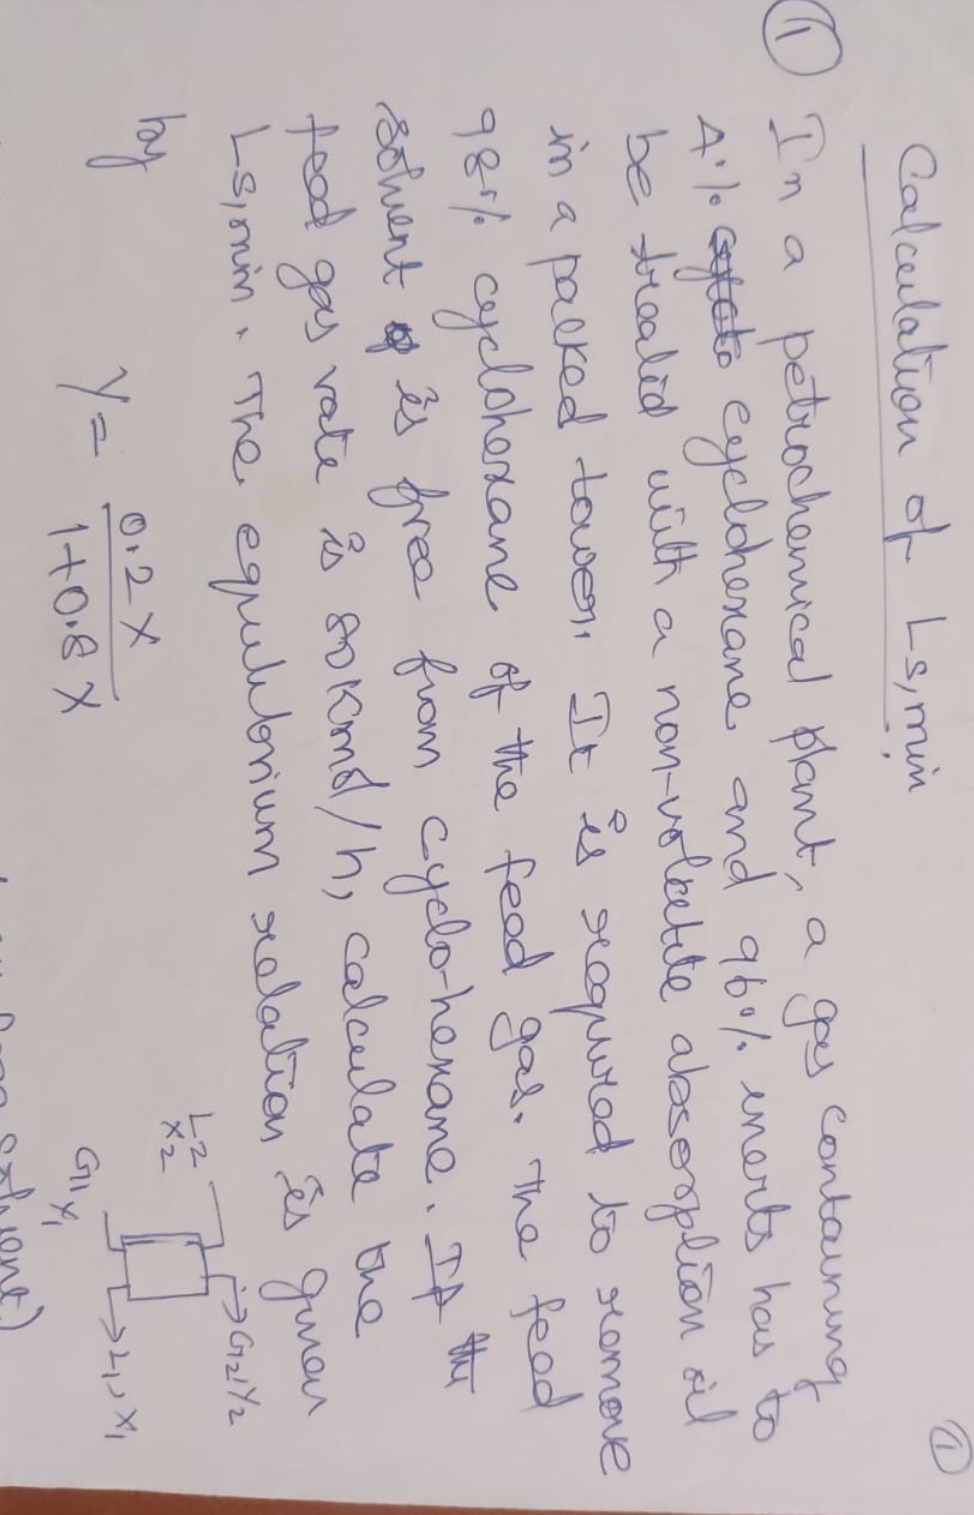 ①
Calculation of Ls,min.
① In a petrochemical plant, a gas containing
4% cyclohexane and 96% inerts has to
be treated with a non-volatile absorption oil
in a packed tower. It is required to remove
98% cyclohexane of the feed gas. The feed
solvent is free from cyclo-hexane. If the
feed gas rate is 80 Kmol/h, calculate the
Ls,min. The equilibrium relation is given
by
Y = 0.2 X / 1+0.8 X
L2
X2
→ G2, Y2
G1 Y1
→ L1, X1
solvent)